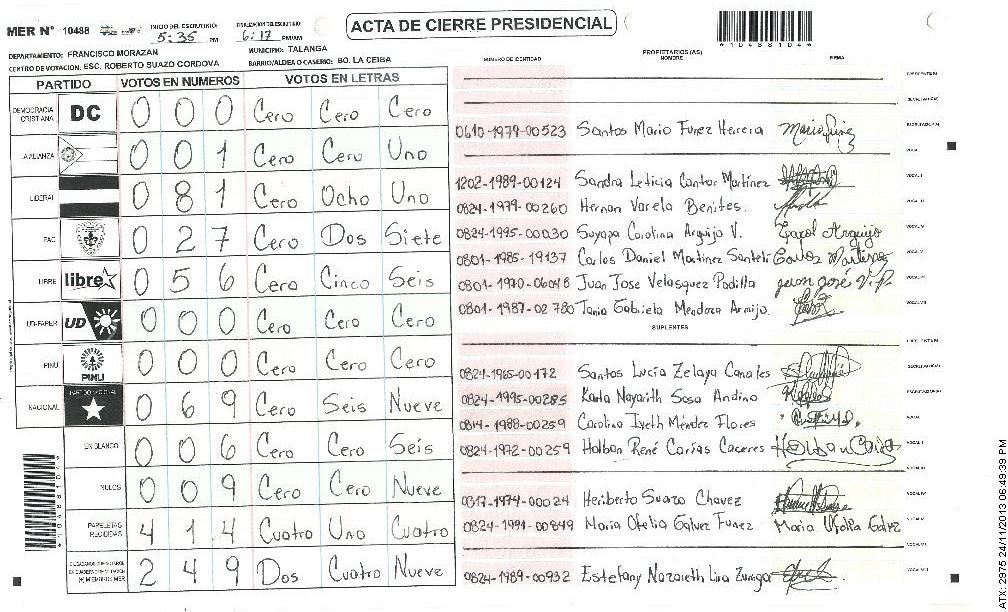 MER N° 10488 INICIO DEL ESCRUTINIO: 5:35 PM FINALIZACION DEL ESCRUTINIO: 6:17 PM/AM
ACTA DE CIERRE PRESIDENCIAL
*1048810 4*
DEPARTAMENTO: FRANCISCO MORAZAN MUNICIPIO: TALANGA
CENTRO DE VOTACION: ESC. ROBERTO SUAZO CORDOVA BARRIO/ALDEA O CASERIO: BO. LA CEIBA
NUMERO DE IDENTIDAD PROPIETARIOS (AS) NOMBRE FIRMA
PARTIDO VOTOS EN NUMEROS VOTOS EN LETRAS
DEMOCRACIA CRISTIANA DC 0 0 0 Cero Cero Cero
LA ALIANZA 0 0 1 Cero Cero Uno
LIBERAL 0 8 1 Cero Ocho Uno
PAC 0 2 7 Cero Dos Siete
LIBRE libre 0 5 6 Cero Cinco Seis
UD-FAPER UD 0 0 0 Cero Cero Cero
PINU PINU 0 0 0 Cero Cero Cero
NACIONAL PARTIDO NACIONAL 0 6 9 Cero Seis Nueve
EN BLANCO 0 0 6 Cero Cero Seis
NULOS 0 0 9 Cero Cero Nueve
PAPELETAS RECIBIDAS 4 1 4 Cuatro Uno Cuatro
CIUDADANOS QUE VOTARON EN CUADERNO DE VOTACION (+) MIEMBROS MER 2 4 9 Dos Cuatro Nueve
PRESIDENTE(A)
SECRETARIO(A)
0610-1979-00523 Santos Mario Funez Herrera Mario Funez ESCRUTADOR(A)
VOCAL I
1202-1989-00124 Sandra Leticia Cantor Martínez VOCAL II
0824-1979-00260 Hernan Varela Benites. VOCAL III
0824-1995-00030 Suyapa Carolina Arguijo V. Carol Arguijo VOCAL IV
0801-1985-19137 Carlos Daniel Martinez Santeli Carlos Martinez VOCAL V
0801-1970-06048 Juan Jose Velasquez Padilla juan josé V.P. VOCAL VI
0801-1987-02780 Tania Gabriela Mendoza Armijo. VOCAL VII
SUPLENTES
PRESIDENTE(A)
0824-1965-00172 Santos Lucía Zelaya Canales SECRETARIO(A)
0824-1995-00285 Karla Nayarith Sosa Andino ESCRUTADOR(A)
0814-1988-00259 Carolina Iveth Méndez Flores VOCAL I
0824-1972-00259 Holban René Carías Caceres Holban Carías VOCAL II
VOCAL III
0317-1974-00024 Heriberto Suazo Chavez VOCAL IV
0824-1991-00849 Maria Ofelia Galvez Funez Maria Ofelia Galvez VOCAL V
VOCAL VI
0824-1989-00932 Estefany Nazareth Lira Zuniga VOCAL VII
ATX: 2975 24/11/2013 06:49:39 PM